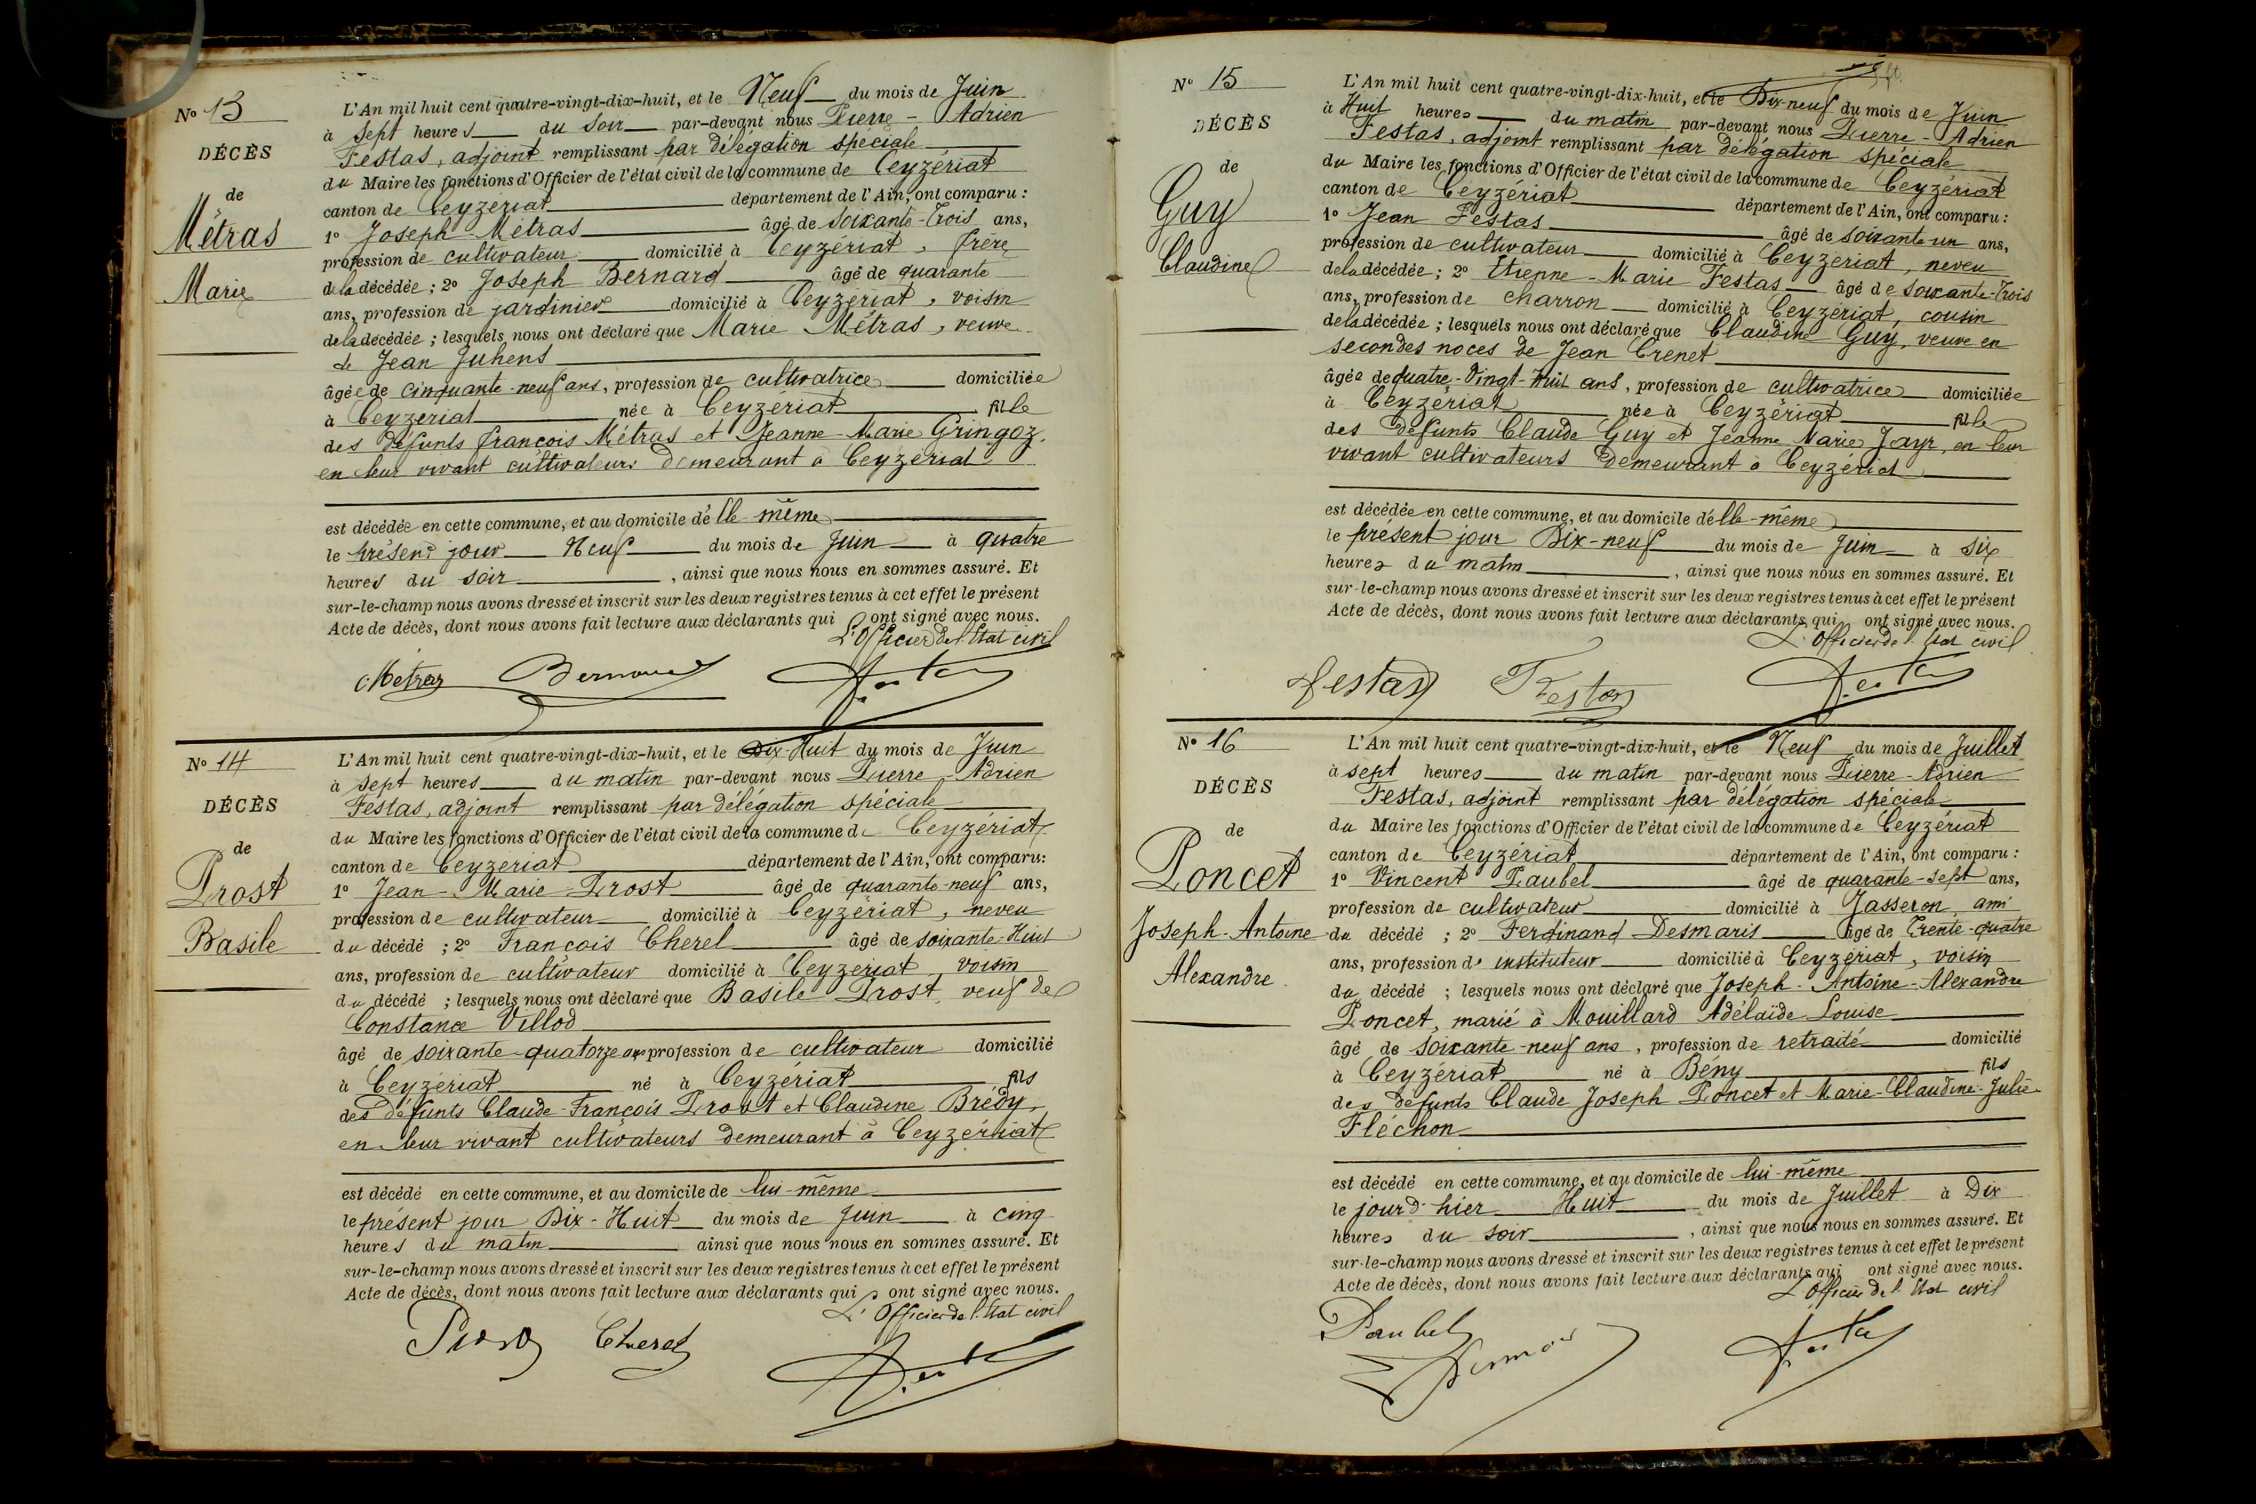 N° 13
DÉCÈS
de
Métras
Marie
L'An mil huit cent quatre-vingt-dix-huit, et le Neuf du mois de Juin
à sept heures du soir par-devant nous Pierre-Adrien
Festas, adjoint remplissant par délégation spéciale
du Maire les fonctions d'Officier de l'état civil de la commune de Ceyzériat
canton de Ceyzériat département de l'Ain, ont comparu :
1° Joseph Métras âgé de soixante-trois ans,
profession de cultivateur domicilié à Ceyzériat, frère
de la décédée ; 2° Joseph Bernard âgé de quarante
ans, profession de jardinier domicilié à Ceyzériat, voisin
de la décédée ; lesquels nous ont déclaré que Marie Métras, veuve
de Jean Juhens
âgée de cinquante-neuf ans, profession de cultivatrice domiciliée
à Ceyzériat née à Ceyzériat fille
des défunts François Métras et Jeanne-Marie Gringoz,
en leur vivant cultivateurs demeurant à Ceyzériat
est décédée en cette commune, et au domicile d'elle-même
le présent jour Neuf du mois de Juin à quatre
heures du soir, ainsi que nous nous en sommes assuré. Et
sur-le-champ nous avons dressé et inscrit sur les deux registres tenus à cet effet le présent
Acte de décès, dont nous avons fait lecture aux déclarants qui ont signé avec nous.
L'Officier de l'État civil
Métras Bernard Festas
N° 14
DÉCÈS
de
Prost
Basile
L'An mil huit cent quatre-vingt-dix-huit, et le Dix-Huit du mois de Juin
à sept heures du matin par-devant nous Pierre-Adrien
Festas, adjoint remplissant par délégation spéciale
du Maire les fonctions d'Officier de l'état civil de la commune de Ceyzériat
canton de Ceyzériat département de l'Ain, ont comparu :
1° Jean-Marie Prost âgé de quarante-neuf ans,
profession de cultivateur domicilié à Ceyzériat, neveu
du décédé ; 2° François Cherel âgé de soixante-Huit
ans, profession de cultivateur domicilié à Ceyzériat voisin
du décédé ; lesquels nous ont déclaré que Basile Prost, veuf de
Constance Villod
âgé de soixante-quatorze ans profession de cultivateur domicilié
à Ceyzériat né à Ceyzériat fils
des défunts Claude-François Prost et Claudine Brédy,
en leur vivant cultivateurs demeurant à Ceyzériat
est décédé en cette commune, et au domicile de lui-même
le présent jour Dix-Huit du mois de Juin à cinq
heures du matin ainsi que nous nous en sommes assuré. Et
sur-le-champ nous avons dressé et inscrit sur les deux registres tenus à cet effet le présent
Acte de décès, dont nous avons fait lecture aux déclarants qui ont signé avec nous.
L'Officier de l'État civil
Prost Cherel Festas
N° 15
DÉCÈS
de
Guy
Claudine
L'An mil huit cent quatre-vingt-dix-huit, et le Dix-neuf du mois de Juin
à Huit heures du matin par-devant nous Pierre-Adrien
Festas, adjoint remplissant par délégation spéciale
du Maire les fonctions d'Officier de l'état civil de la commune de Ceyzériat
canton de Ceyzériat département de l'Ain, ont comparu :
1° Jean Festas âgé de soixante un ans,
profession de cultivateur domicilié à Ceyzériat, neveu
de la décédée ; 2° Etienne-Marie Festas âgé de soixante-trois
ans, profession de charron domicilié à Ceyzériat, cousin
de la décédée ; lesquels nous ont déclaré que Claudine Guy, veuve en
secondes noces de Jean Crenet
âgée de quatre-vingt-huit ans, profession de cultivatrice domiciliée
à Ceyzériat née à Ceyzériat fille
des défunts Claude Guy et Jeanne Marie Jayr, en leur
vivant cultivateurs demeurant à Ceyzériat
est décédée en cette commune, et au domicile d'elle-même
le présent jour Dix-neuf du mois de Juin à six
heures du matin, ainsi que nous nous en sommes assuré. Et
sur-le-champ nous avons dressé et inscrit sur les deux registres tenus à cet effet le présent
Acte de décès, dont nous avons fait lecture aux déclarants qui ont signé avec nous.
L'Officier de l'État civil
Festas Festas Festas
N° 16
DÉCÈS
de
Poncet
Joseph-Antoine
Alexandre
L'An mil huit cent quatre-vingt-dix-huit, et le Neuf du mois de Juillet
à sept heures du matin par-devant nous Pierre-Adrien
Festas, adjoint remplissant par délégation spéciale
du Maire les fonctions d'Officier de l'état civil de la commune de Ceyzériat
canton de Ceyzériat département de l'Ain, ont comparu :
1° Vincent Paubel âgé de quarante-sept ans,
profession de cultivateur domicilié à Jasseron, ami
du décédé ; 2° Ferdinand Desmaris âgé de Trente-quatre
ans, profession de instituteur domicilié à Ceyzériat, voisin
du décédé ; lesquels nous ont déclaré que Joseph-Antoine-Alexandre
Poncet, marié à Mouillard Adélaïde Louise
âgé de soixante-neuf ans, profession de retraité domicilié
à Ceyzériat né à Bény fils
des défunts Claude Joseph Poncet et Marie-Claudine-Julie
Fléchon
est décédé en cette commune, et au domicile de lui-même
le jour d'hier Huit du mois de Juillet à Dix
heures du soir, ainsi que nous nous en sommes assuré. Et
sur-le-champ nous avons dressé et inscrit sur les deux registres tenus à cet effet le présent
Acte de décès, dont nous avons fait lecture aux déclarants qui ont signé avec nous.
L'Officier de l'État civil
Paubel Festas
Desmaris